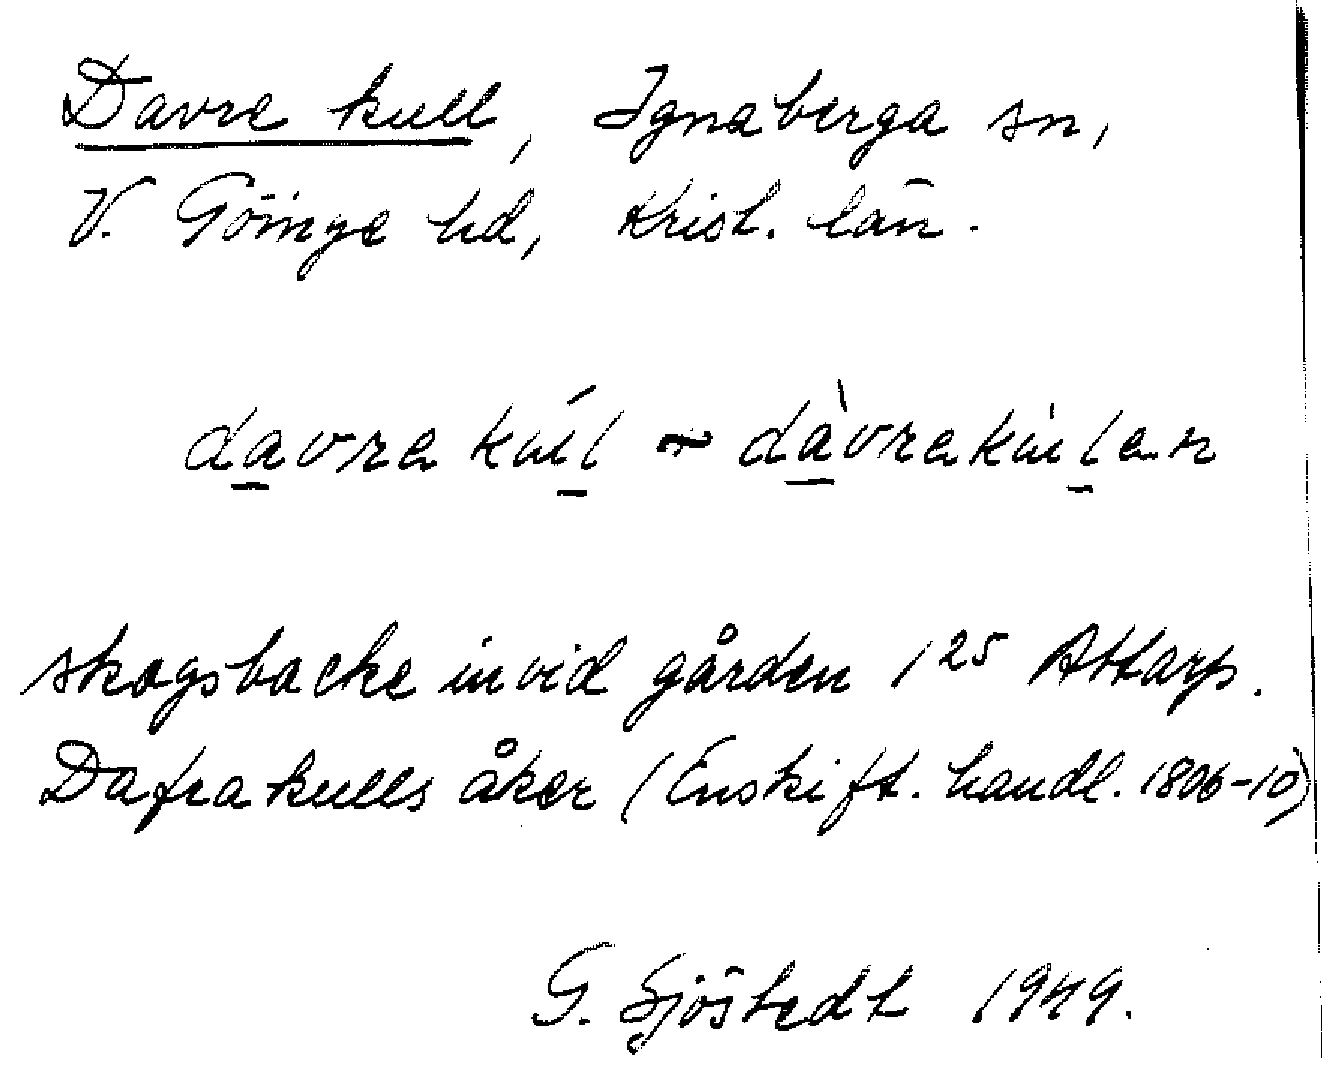 Davre kull, Ignaberga sn,
V. Göinge hd, Krist. län.
davrekúl ~ dàvrekùlen
skogsbacke invid gården 1²⁵ Attarp.
Dafrakulls åker (Enskift. handl. 1806-10)
G. Sjöstedt 1949.